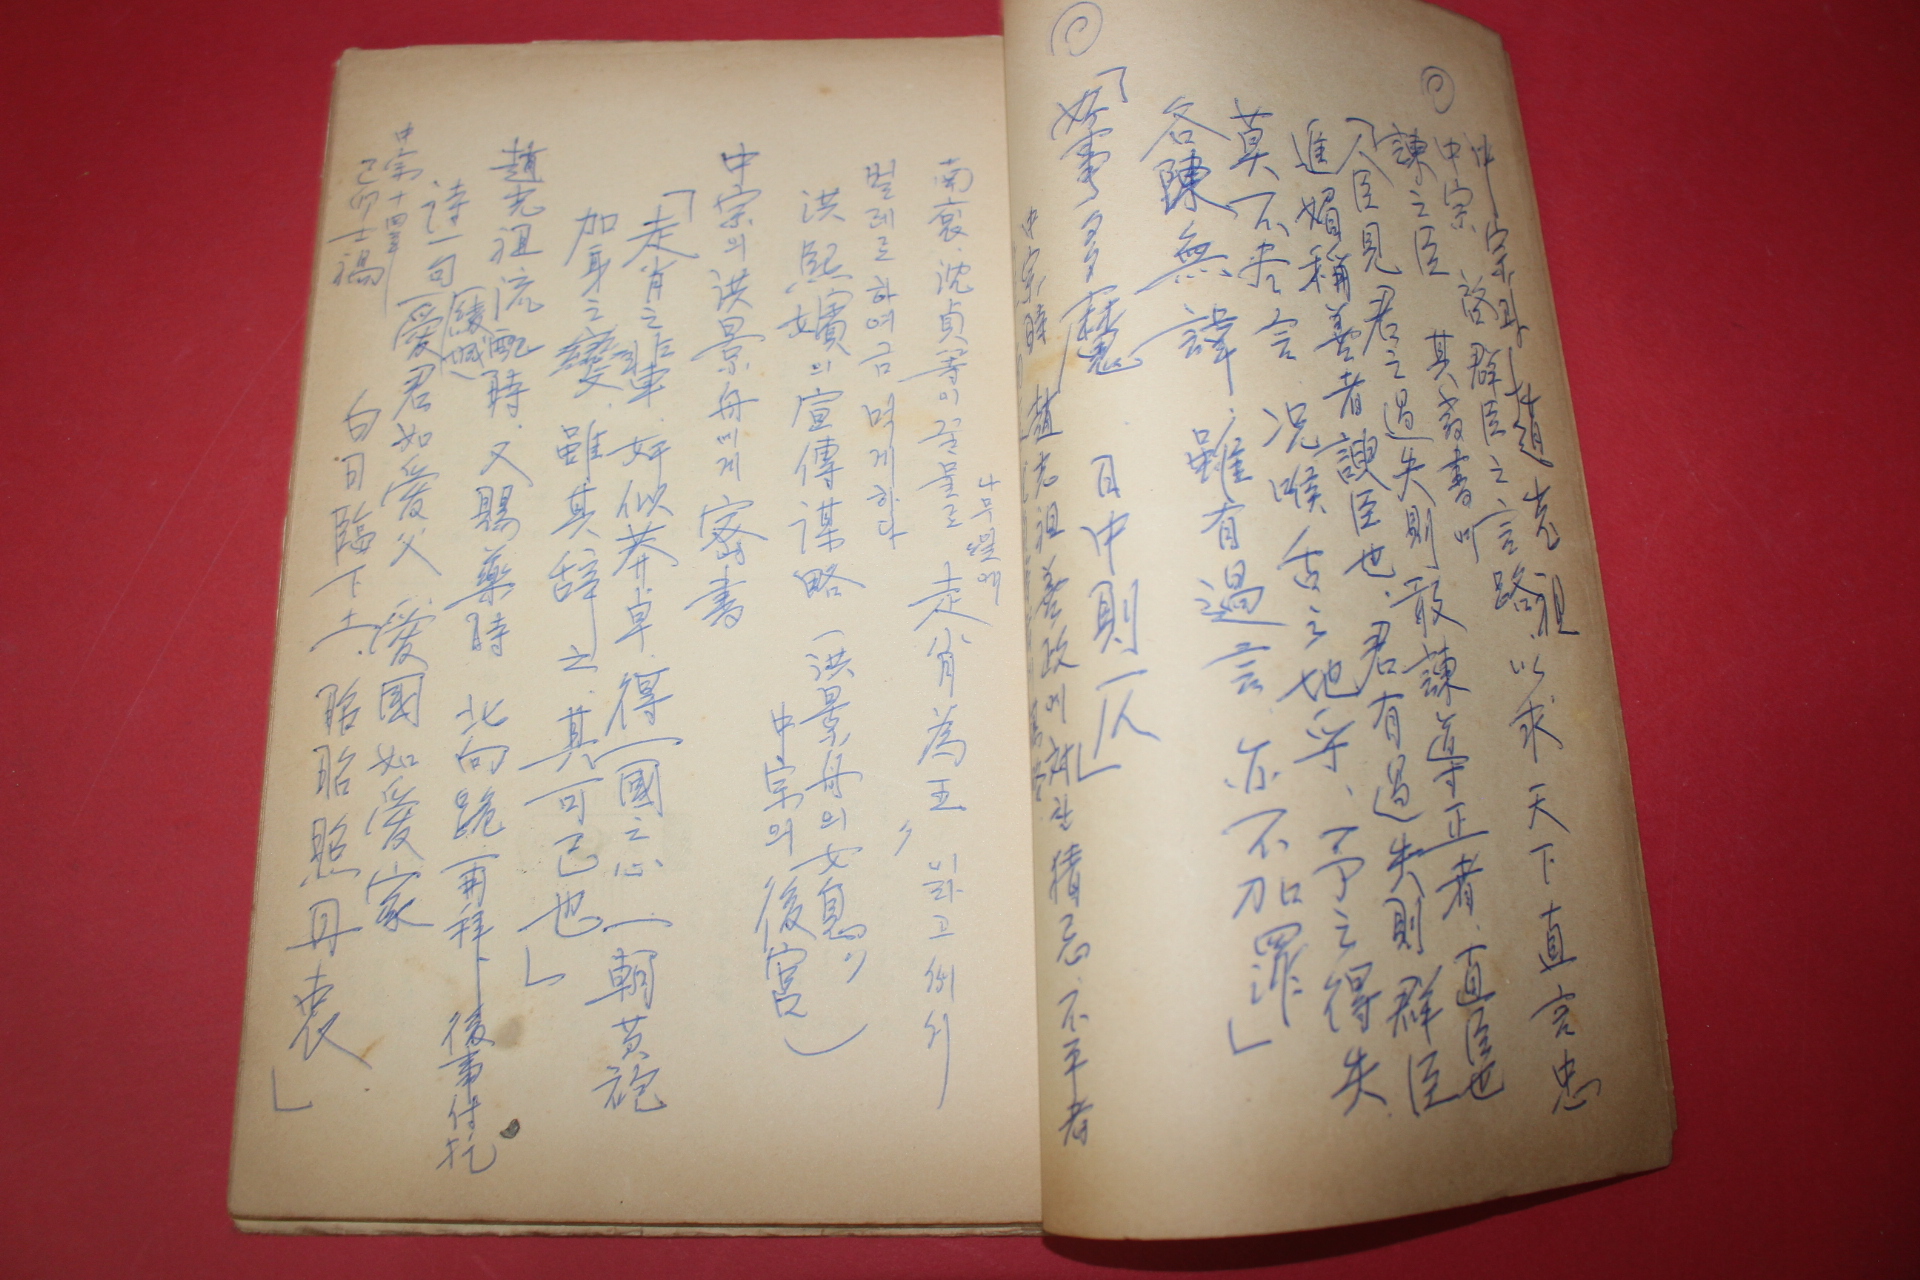 中宗때 趙光祖 以求天下直言忠
諫之臣
中宗 啓群臣之言路
其敎書
「人臣見君之過失則敢諫導正者、直臣也
進媚稱善者諛臣也、君有過失則群臣
莫不盡言 况喉舌之地乎、予之得失
各陳無諱、雖有過言亦不加罪」
「好事多魔 日中則仄」
中宗時 趙光祖 善政에 對한 猜忌 不平者
南袞、沈貞等이 꿀물로 나무잎에 走肖為王, 이라고 써서
벌레로하여금 먹게하다
洪熙嬪의 宣傳謀略 (洪景舟의 女息 中宗의 後宮)
中宗의 洪景舟에게 密書
「走肖之輩、奸似莽卓、得一國之心 一朝黃袍
加身之變、雖其辭之、其可已也」
趙光祖 流配時、又賜藥時 北向跪 再拜、後事付托
(綾城)
詩一句 「愛君如愛父 愛國如愛家
白日臨下土、昭昭照丹衷」
中宗十四年
己卯士禍